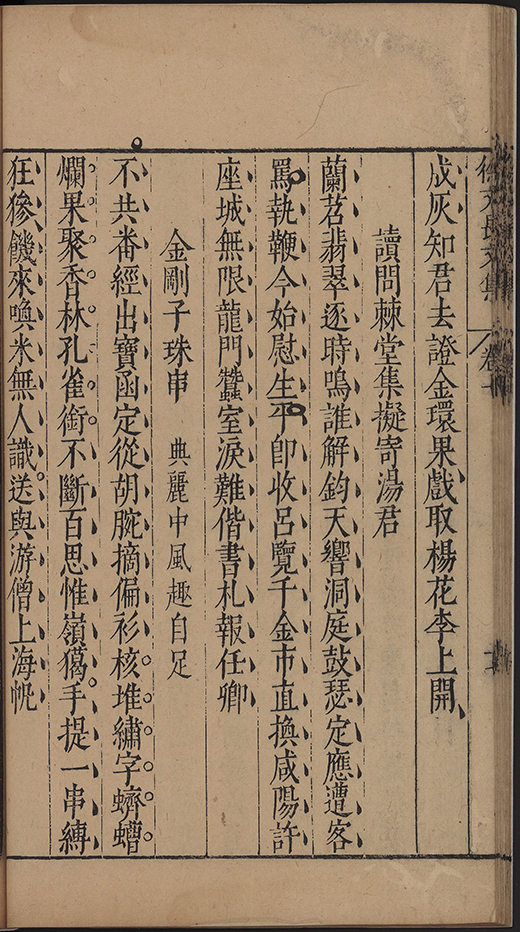 徐文長文集 卷十
成灰知君去證金環果戲取楊花李上開
讀問棘堂集擬寄湯君
蘭苕翡翠逐時鳴誰解鈞天響洞庭鼓瑟定應遭客
罵執鞭今始慰生平卽收呂覽千金市直換咸陽許
座城無限龍門蠶室淚難偕書札報任卿
金剛子珠串 典麗中風趣自足
不共番經出寶函定從胡腕摘偏衫核堆繡字蠐螬
爛果聚香林孔雀銜不斷百思惟嶺獦手提一串縛
狂獠饑來喚米無人識送與游僧上海帆